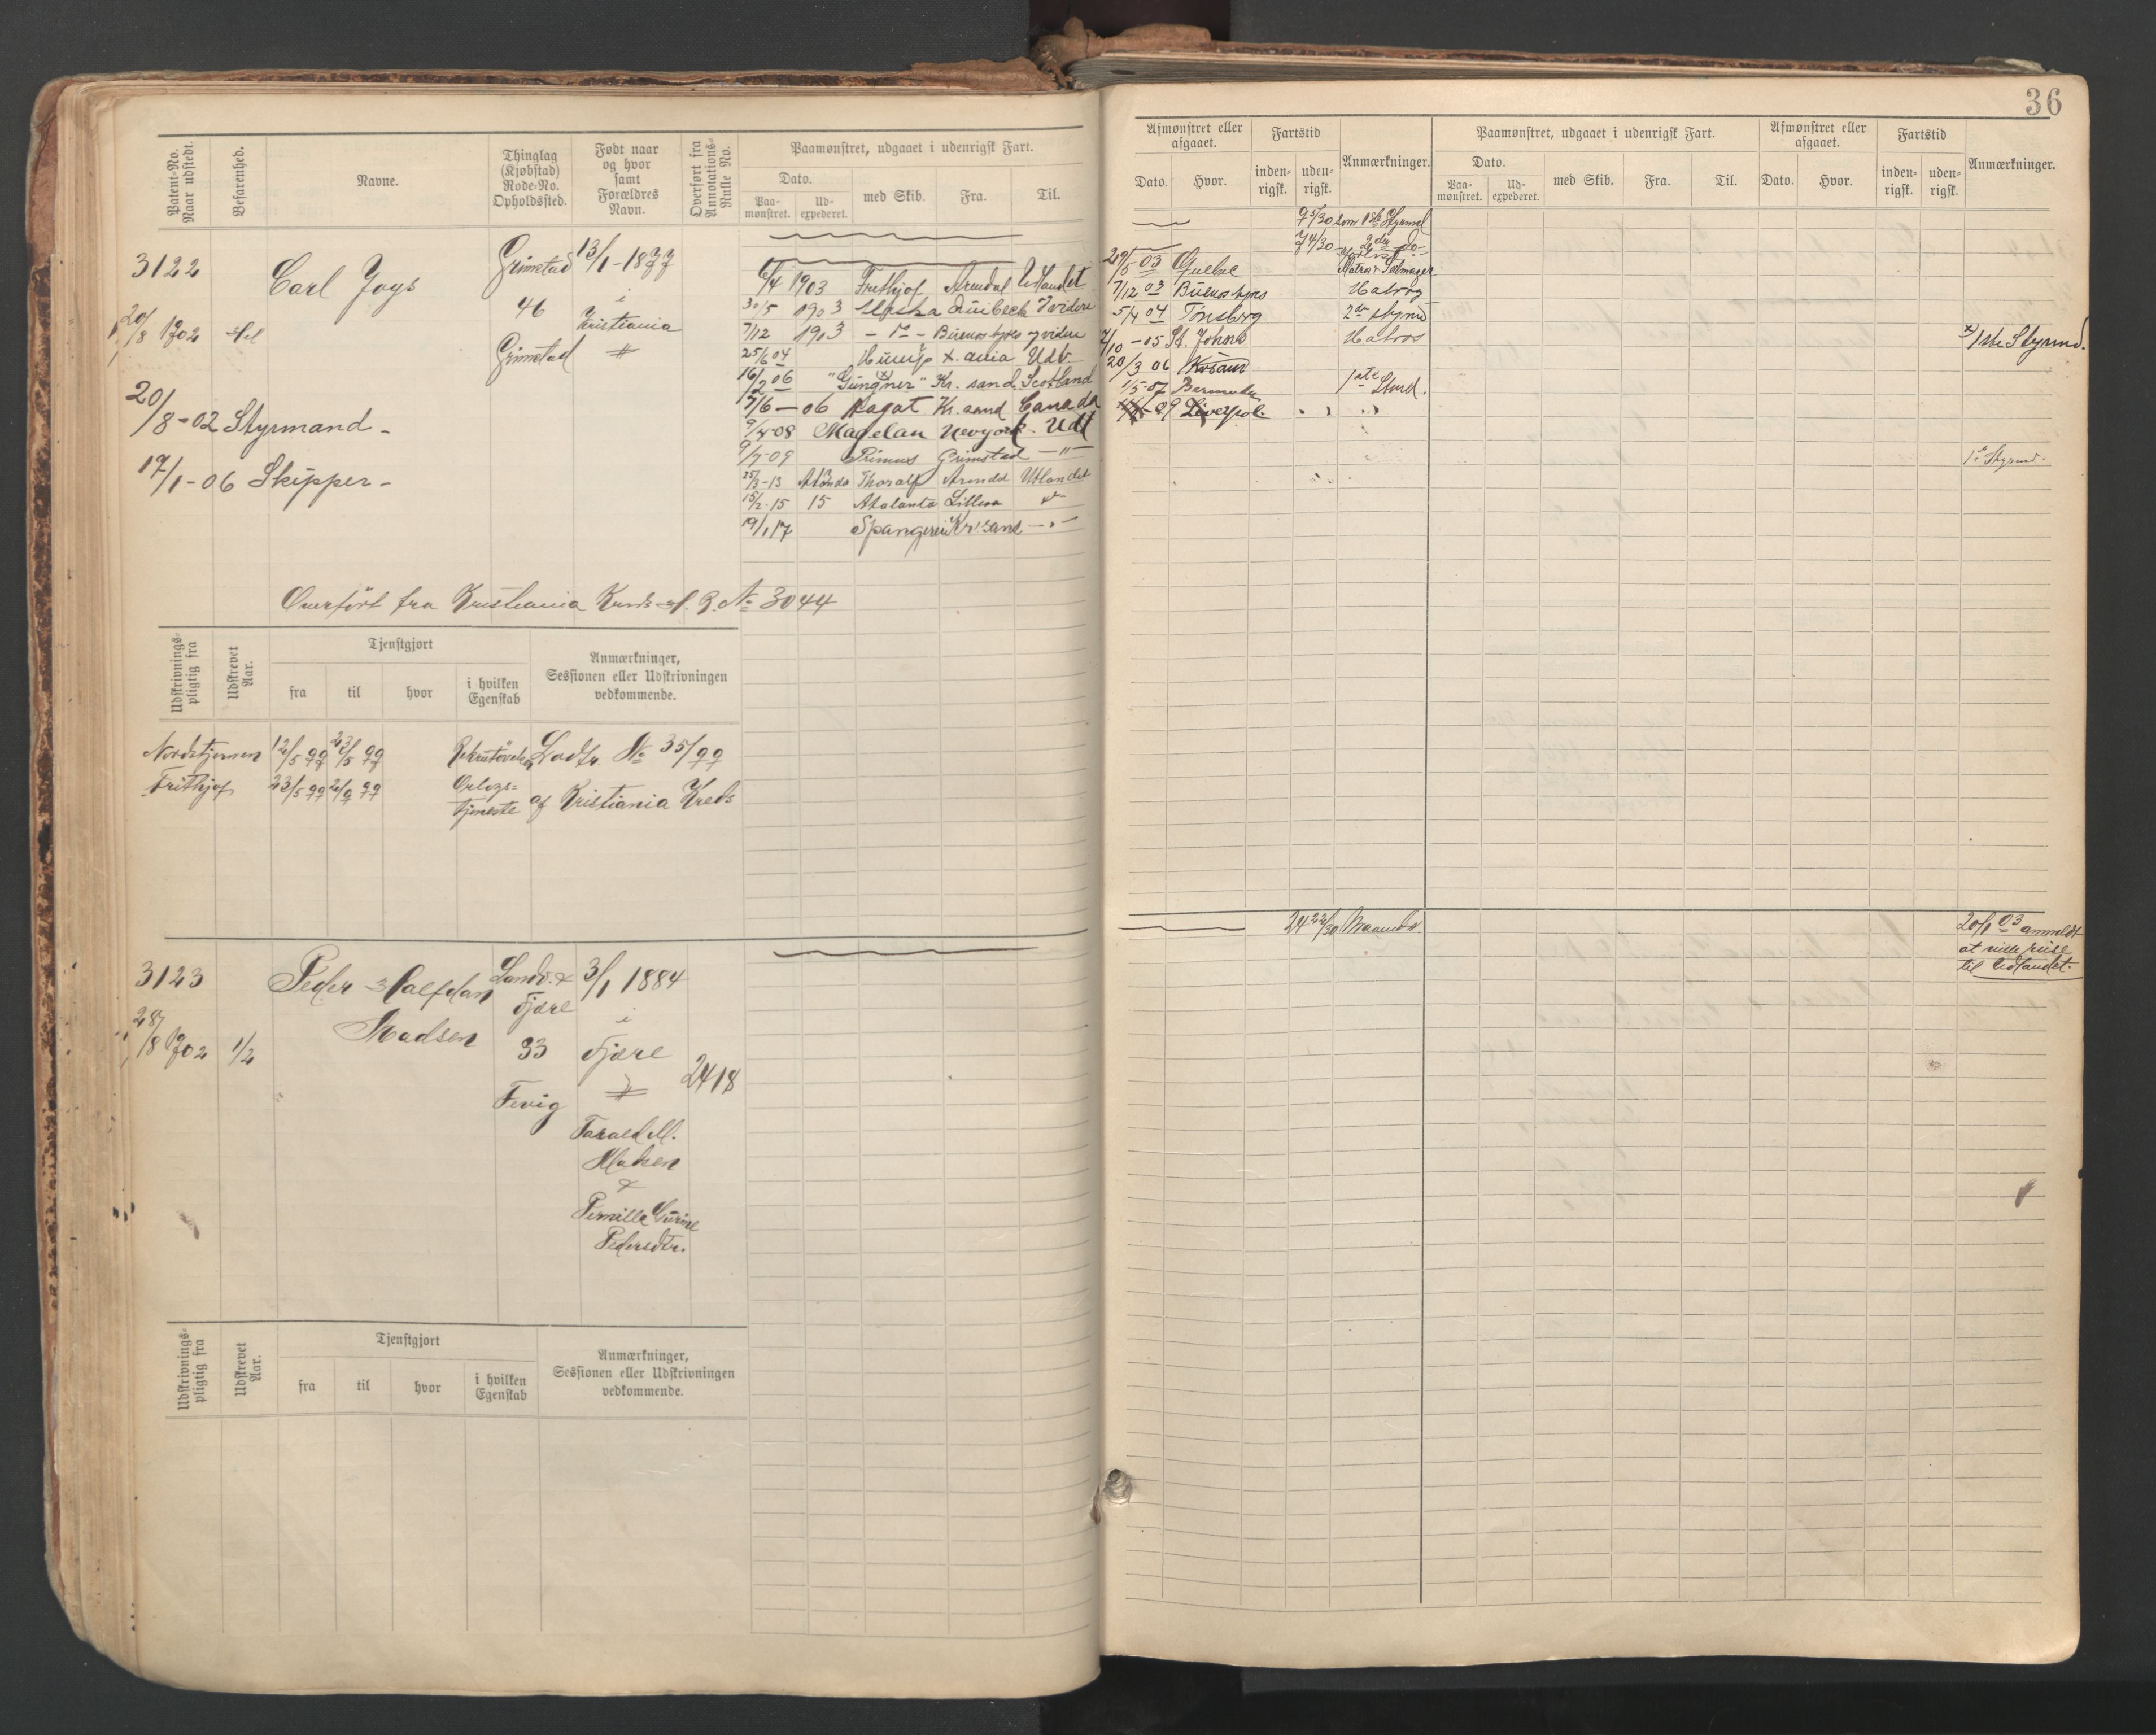 36
Patent-No. Naar udstedt.
Befarenhed.
Navne.
Thinglag (Kjøbstad) Rode-No. Opholdssted.
Født naar og hvor samt Forældres Navn.
Overført fra Annotations-Rulle No.
Paamønstret, udgaaet i udenrigsk Fart.
Dato.
Paa-mønstret.
Ud-expederet.
med Skib.
Fra.
Til.
Afmønstret eller afgaaet.
Dato.
Hvor.
Fartstid
inden-rigsk.
uden-rigsk.
Anmærkninger.
Paamønstret, udgaaet i udenrigsk Fart.
Dato.
Paa-mønstret.
Ud-expederet.
med Skib.
Fra.
Til.
Afmønstret eller afgaaet.
Dato.
Hvor.
Fartstid
inden-rigsk.
uden-rigsk.
Anmærkninger.
3122
20/8 1902
Carl Joys
Grimstad
46
Grimstad
13/1-1877
i
Kristiania
20/8-02 Styrmand -
17/1-06 Skipper -
6/4 1903 Frithjof Arendal Udlandet
30/5 1903
7/12 1903 Buenos Ayres
25/6 04
16/2 06 "Gungner" Kr. sand. Scotland
7/6-06 Kr. sand Canada
9/4-08 Magelan Newyork Udl
9/7-09 Primus Grimstad - " -
25/3-13 Thoralf Arendal Utlandet
15/2-15 15 Atalanta Lillesa
19/1 17 Kr'sand
9 5/30 som 1ste Styrmd
7 4/30 2den do
29/5 03
7/12 03 Buenos Ayres Matros
5/4 04 Tønsberg 2den Styrmd
7/10-05 St. Johns Matros
20/3 06
1/5-07 Bermuda 1ste Stmd.
09 Liverpol
x) 1ste Styrmd.
1ste Styrmd.
Overført fra Kristiania Kreds No 3044
Udskrivnings-pligtig fra
Udskrevet Aar.
Tjenstgjort
fra
til
hvor
i hvilken Egenskab
Anmærkninger, Sessionen eller Udskrivningen vedkommende.
Nordstjernen 12/5 99 23/5 99
Lodtr. No 35/99
Frithjof 23/5 99 2/9 99 Orlogs-tjeneste
af Kristiania Kreds
3123
28/8 1902
1/2
Peder Halfdan
Madsen
Landv. &
Fjære
33
Fevig
3/1 1884
i
Fjære
2418
Tarald M.
Madsen
&
Pernille Gurine
Pedersdtr.
24 22/30 Maaneder.
20/1 03 anmeldt
at ville reise
til Udlandet.
Udskrivnings-pligtig fra
Udskrevet Aar.
Tjenstgjort
fra
til
hvor
i hvilken Egenskab
Anmærkninger, Sessionen eller Udskrivningen vedkommende.